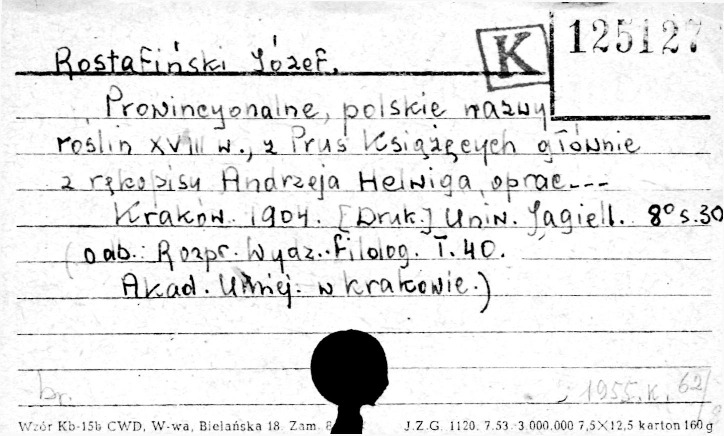 K 125127
Rostafiński Józef.
Prowincyonalne, polskie nazwy
roślin XVIII w., z Prus Książęcych głównie
z rękopisy Andrzeja Helwiga, oprac---
Kraków. 1904. [Druk.] Uniw. Jagiell. 8° s. 30
(odb.: Rozpr. Wydz. Filolog. T. 40.
Akad. Umiej. w Krakowie.)
br. 1955.K. 62/
Wzór Kb-15b CWD, W-wa, Bielańska 18. Zam. J.Z.G. 1120. 7.53. 3.000.000 7,5×12,5 karton 160 g